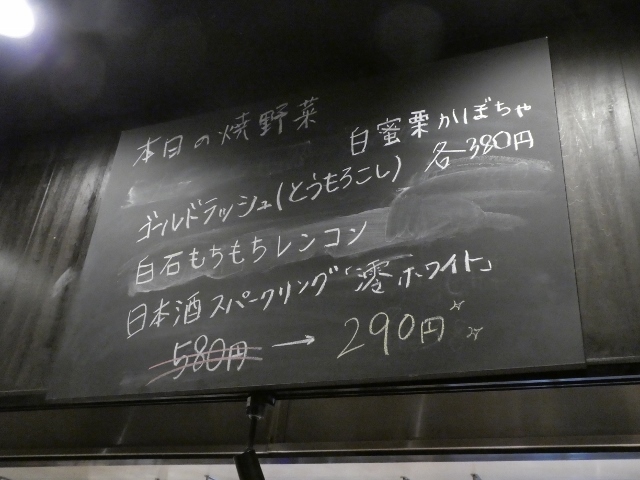 本日の焼野菜
白蜜栗かぼちゃ
各380円
ゴールドラッシュ(とうもろこし)
白石もちもちレンコン
日本酒スパークリング「澪ホワイト」
580円→290円